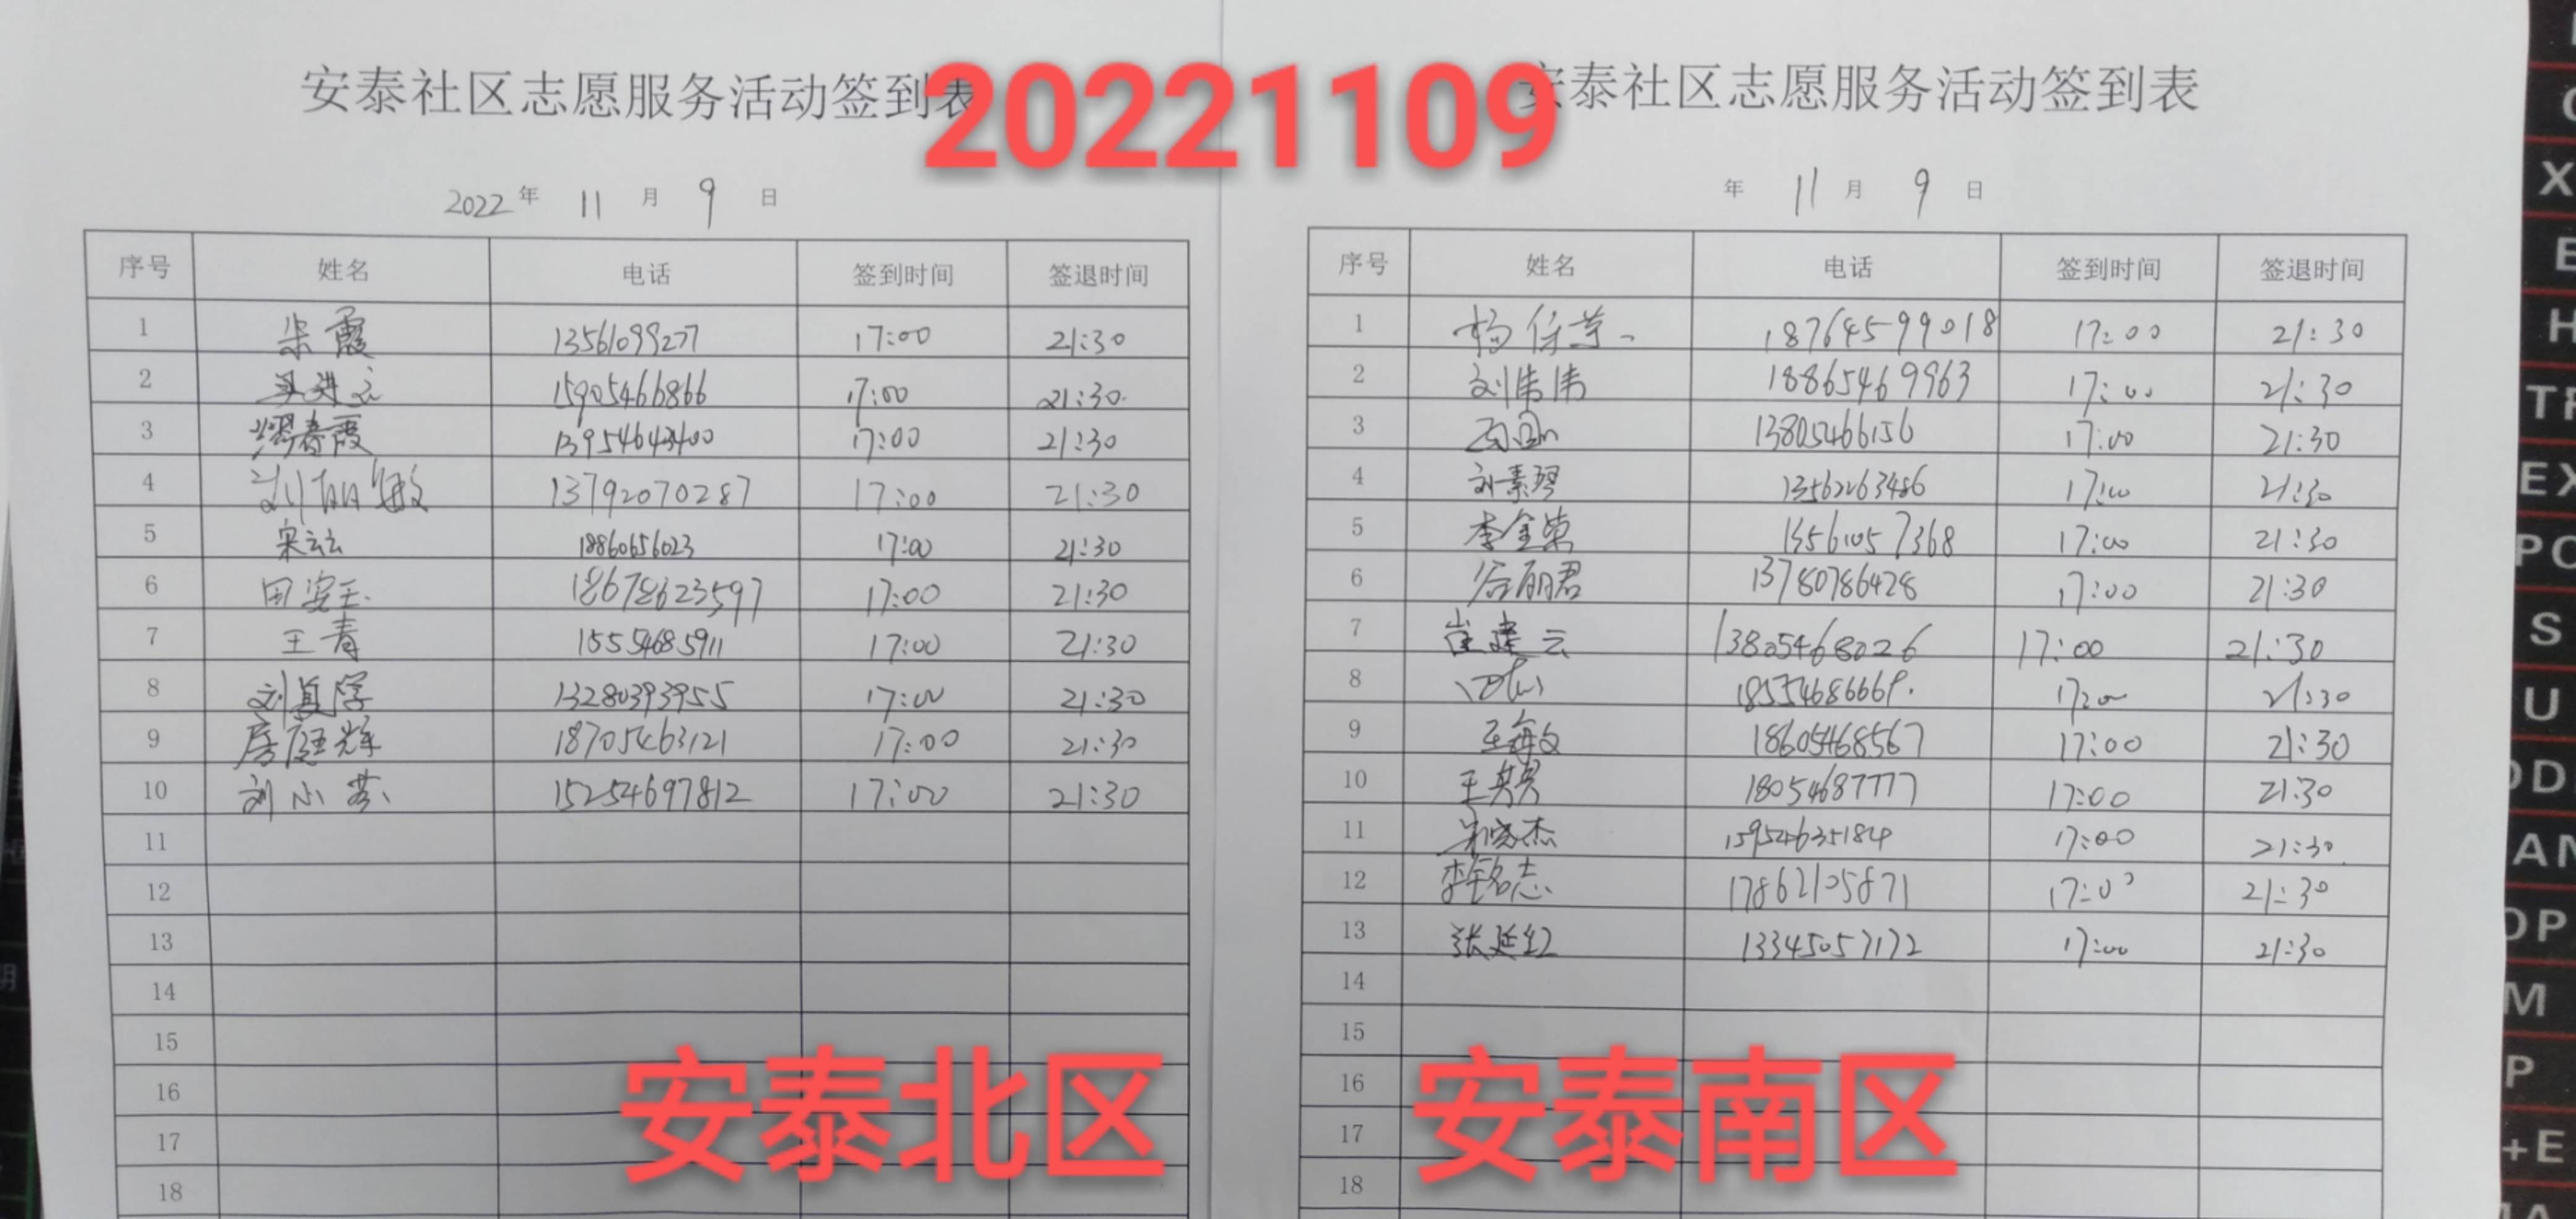 20221109
安泰社区志愿服务活动签到表
2022年 11月 9日
序号 姓名 电话 签到时间 签退时间
1 朱霞 13561099277 17:00 21:30
2 15905466866 17:00 21:30
3 春霞 13954643400 17:00 21:30
4 刘丽敏 13792070287 17:00 21:30
5 宋云云 18860656023 17:00 21:30
6 田安玉 18678623597 17:00 21:30
7 王青 15554685911 17:00 21:30
8 刘复学 13280393955 17:00 21:30
9 房庭辉 18705463121 17:00 21:30
10 刘小芬 15254697812 17:00 21:30
11
12
13
14
15
16
17
18
安泰北区
安泰社区志愿服务活动签到表
年 11月 9日
序号 姓名 电话 签到时间 签退时间
1 杨 18764599018 17:00 21:30
2 刘伟伟 18865469963 17:00 21:30
3 13805466156 17:00 21:30
4 刘素琴 13562263486 17:00 21:30
5 李金荣 13561057368 17:00 21:30
6 谷丽君 13780786428 17:00 21:30
7 崔建云 13805468026 17:00 21:30
8 17:00 21:30
9 王海文 18605468567 17:00 21:30
10 王 18054687777 17:00 21:30
11 杰 15954635184 17:00 21:30
12 李铭志 17862105871 17:00 21:30
13 张延红 13345057172 17:00 21:30
14
15
16
17
18
安泰南区